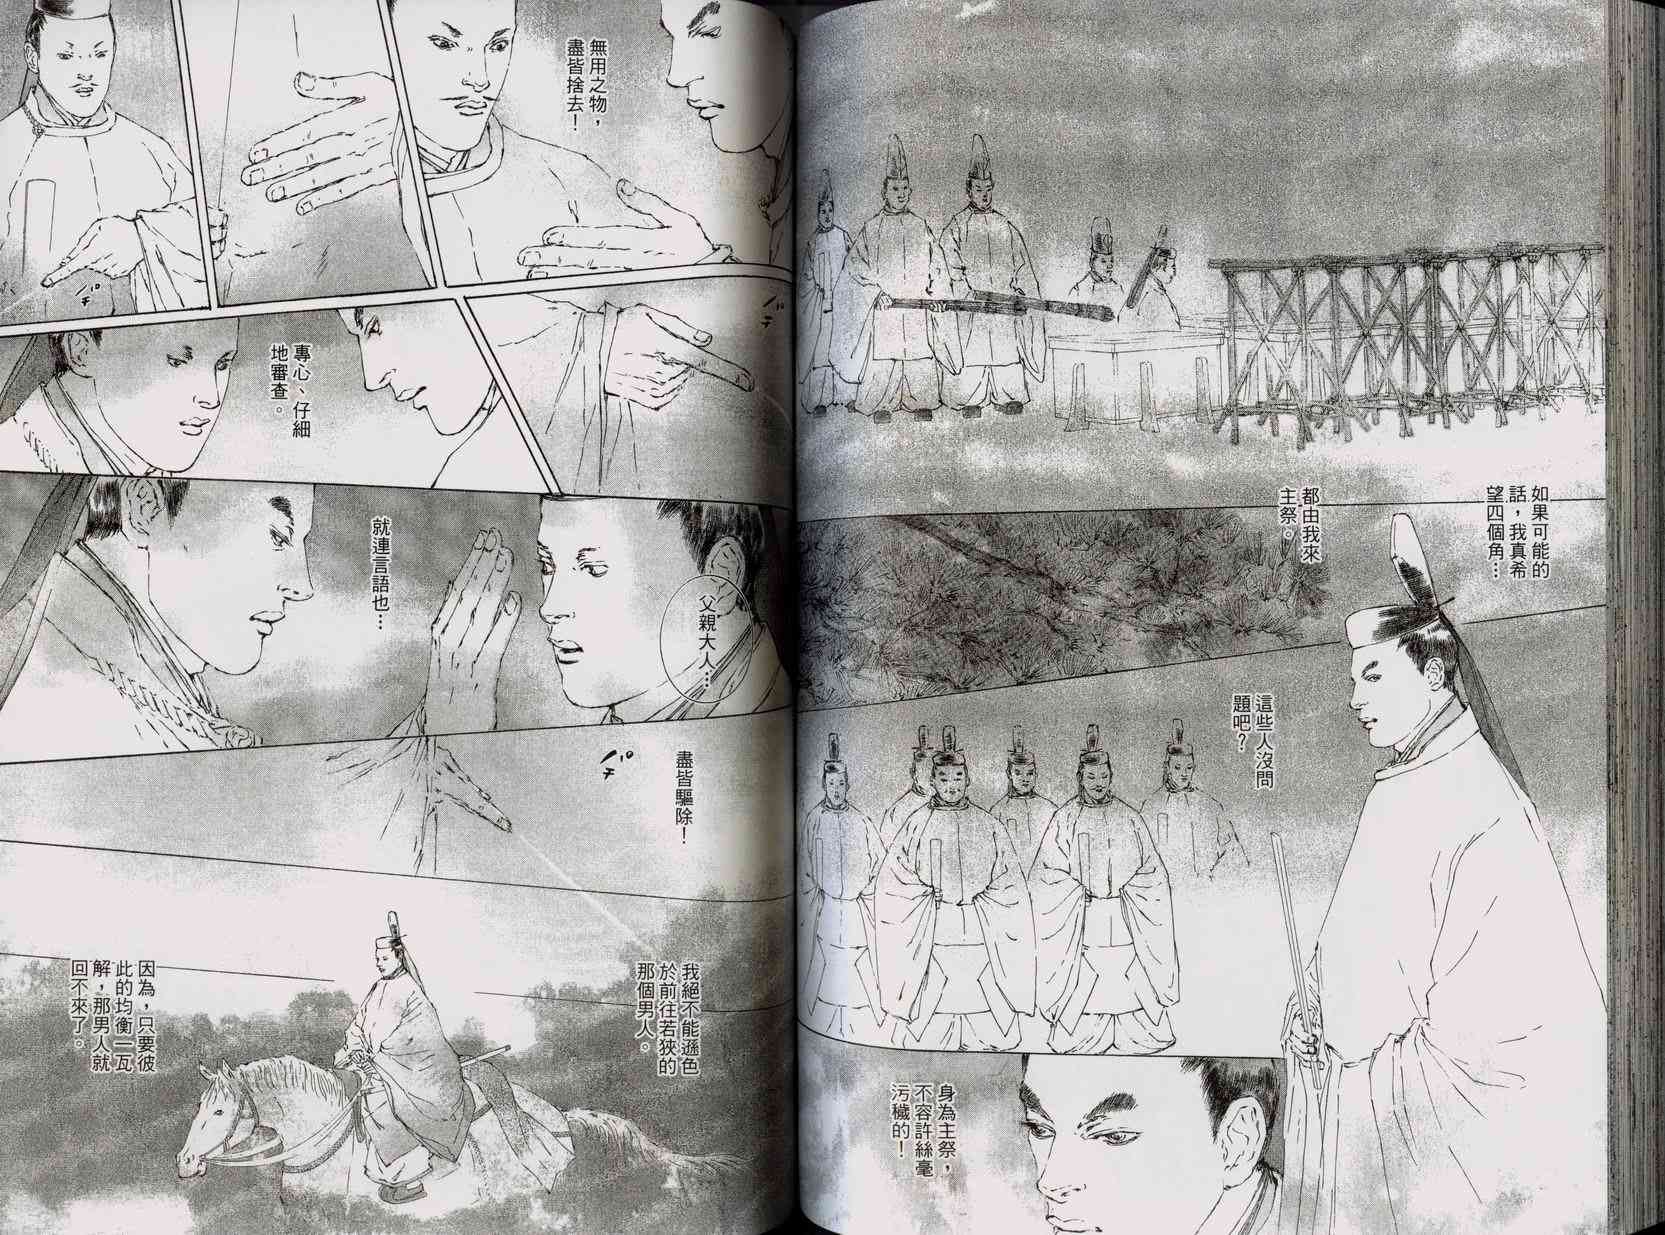 如果可能的
話，我真希
望四個角…
都由我來
主祭。
這些人沒問
題吧？
身為主祭，
不容許絲毫
污穢的！
無用之物，
盡皆捨去！
パチ
パチ
專心、仔細
地審查。
父親大人…
就連言語也…
盡皆驅除！
パチ
我絕不能遜色
於前往若狹的
那個男人。
因為，只要彼
此的均衡一瓦
解，那男人就
回不來了。